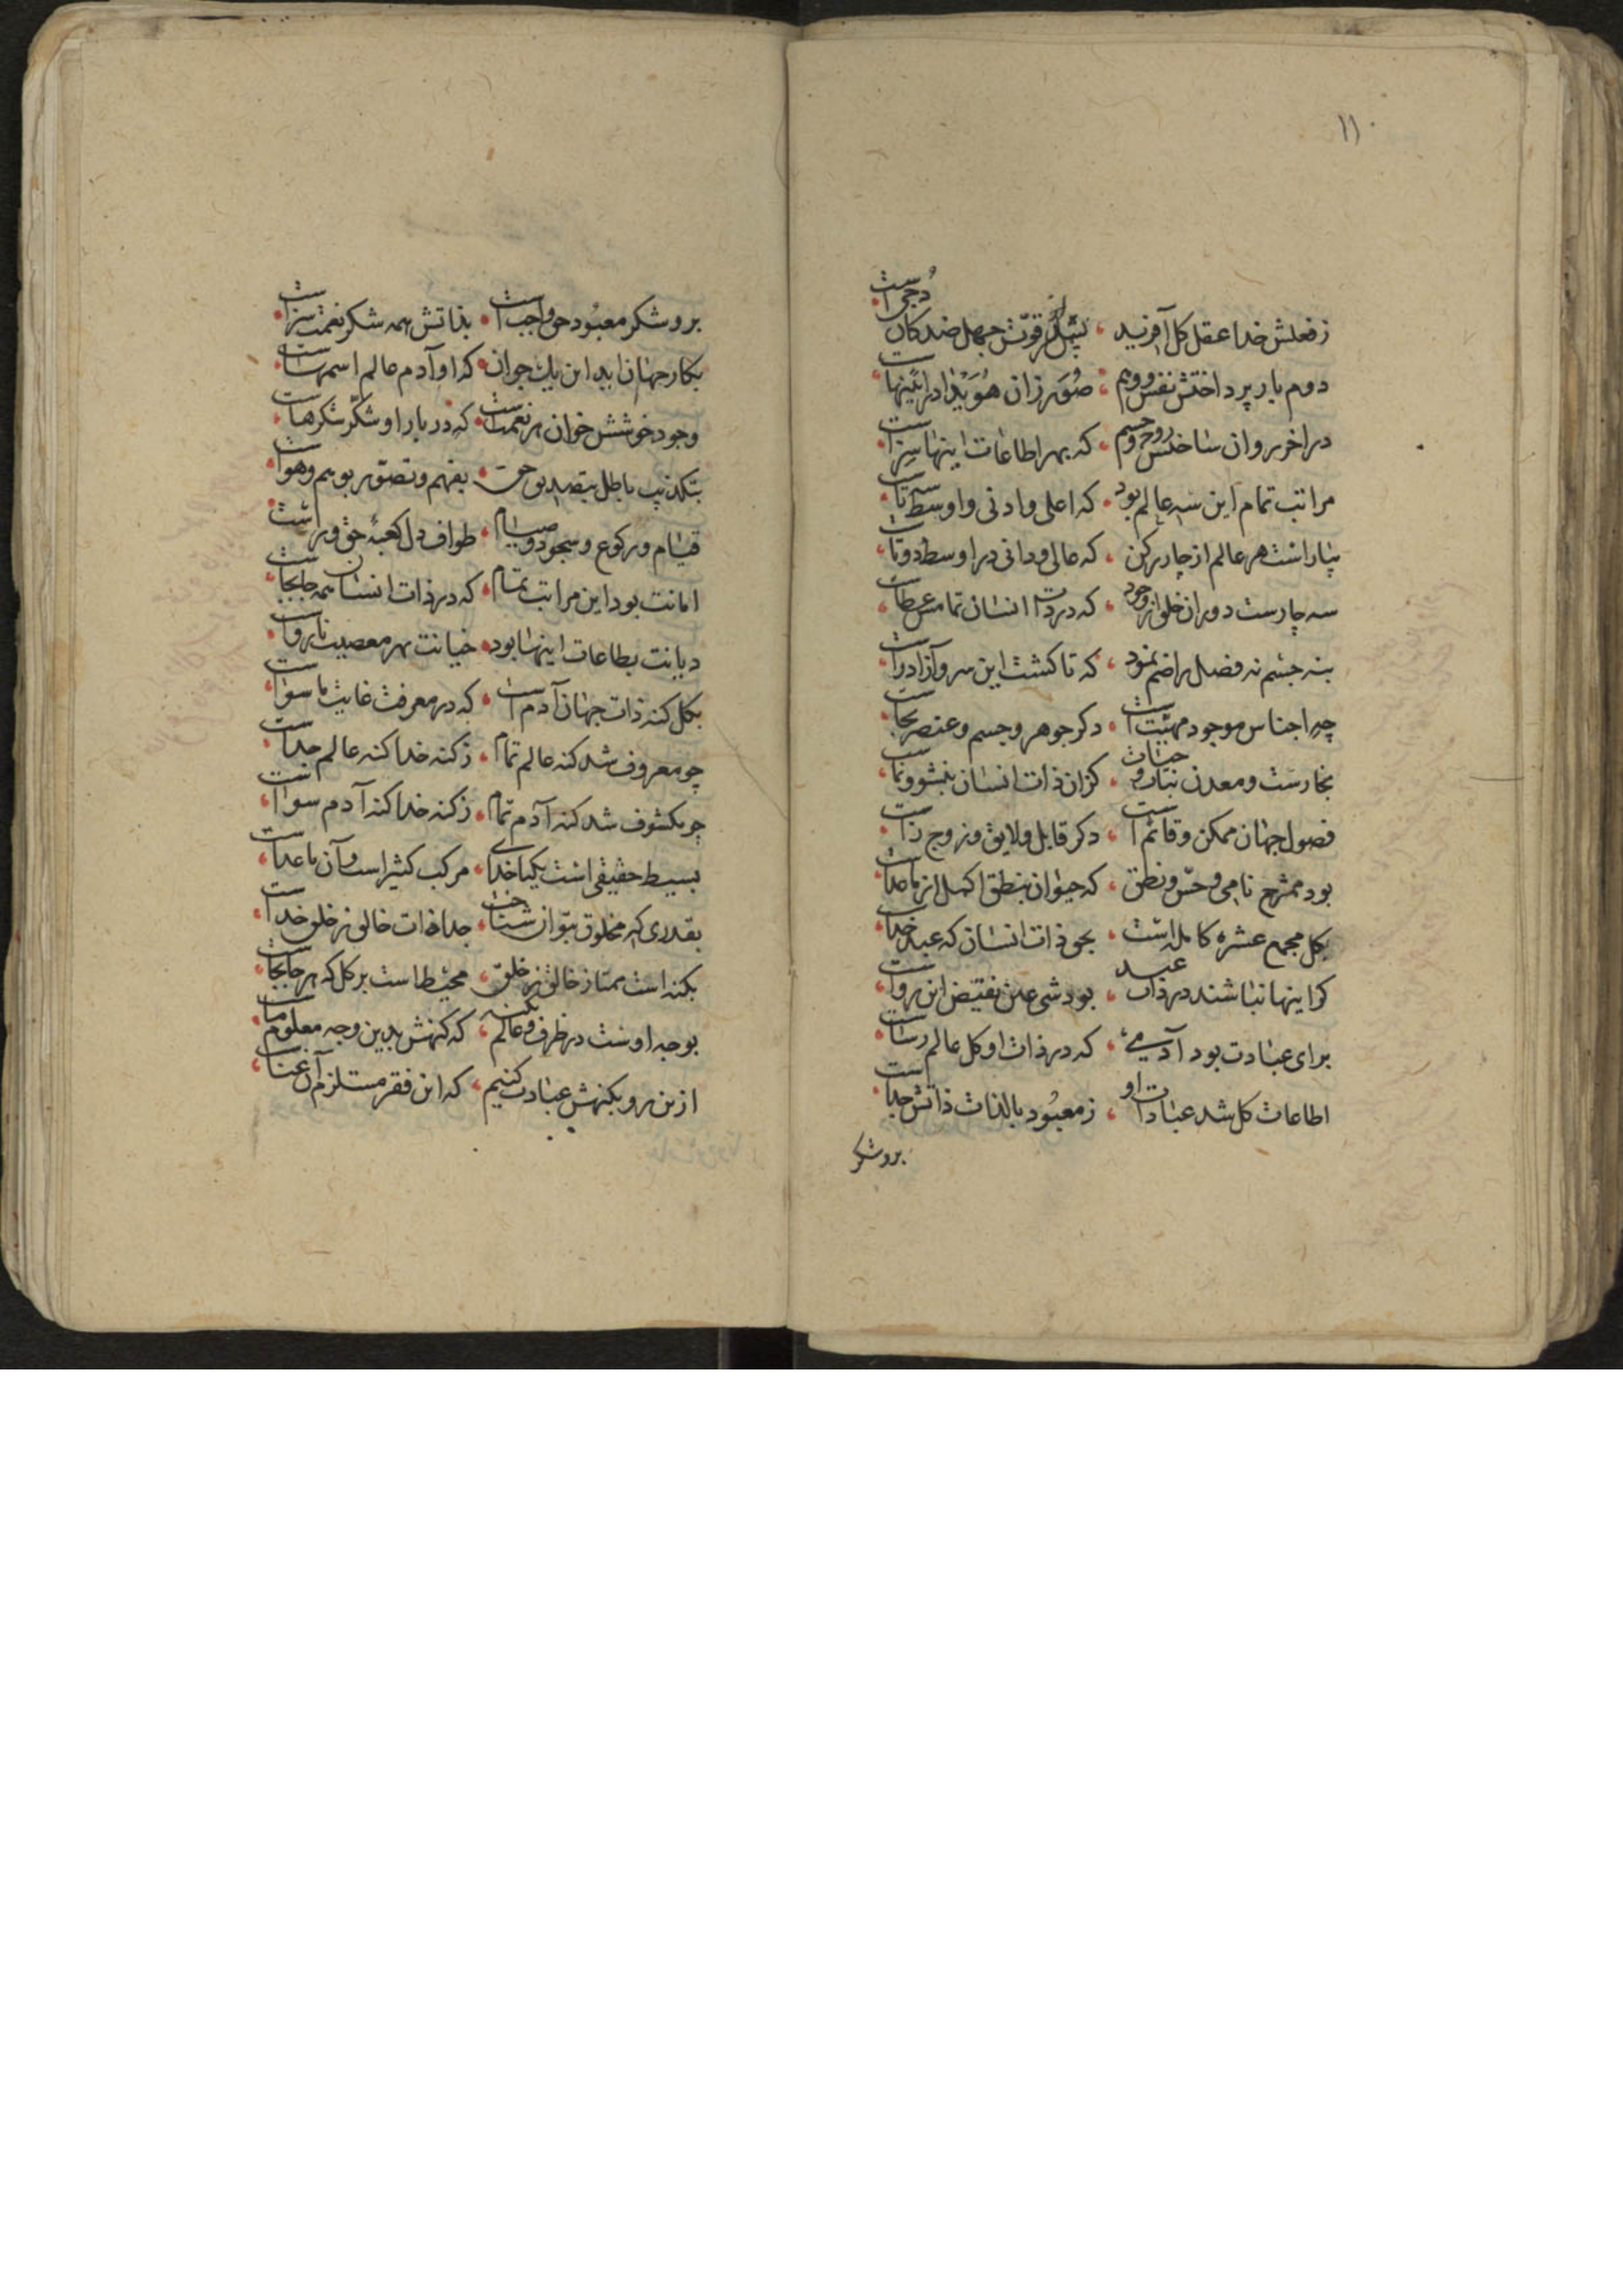 ۱۱۰
ز فعلش خدا عقل کل آفرید ، جهل ضد کان دُجی است
دوم بار پرداختش نفس و وهم ، صُوَر زان هُوَیْدا در آیینهاست
در آخر روان ساختش روح و جسم ، که بهر اطاعات اینها سزاست
مراتب تمام این سه عالم بود ، که اعلی و ادنی و اوسط سه تاست
بپاراست هر عالم از چار رکن ، که عالی و دانی در اوسط دوتاست
سه چارست دوران خلق از وجود ، که در ذات انسان تمامش عطاست
بنه جنسم نه فصل را ضم نمود ، که تا گشت این سرو آزاد راست
چه اجناس موجود مهیّت است ، دکر جوهر و جسم و عنصر بجاست
بخارست و معدن نبات و حیات ، کزان ذات انسان بنشو و نماست
فصول جهان ممکن و قائم است ، دکر قابل و لایق و زوج زاست
بود ممتزج نامی و حسّ و نطق ، که حیوان بنطق اکمل از ماعداست
بکل مجمع عشرهٔ کامله است ، بحق ذات انسان که عبد خداست
کر اینها نباشند در ذات عبد ، بود شی عین نقیض این رواست
برای عبادت بود آدمیٔ ، که در ذات او کل عالم رساست
اطاعات کل شد عبادات او ، ز معبُود بالذات ذاتش جداست
برو شکر
برو شکر معبُود حق واجب است ، بذاتش همه شکر نعمت سزاست
بکار جهان آید این یک جوان ، که او آدم عالم اسمهاست
وجود خوشش خوان هر نعمتست ، که در بار او شکّر شکرهاست
بتکذیب باطل بتصدیق حق ، بفهم و تصوّر بوهم و هواست
قیام و رکوع و سجود و صیام ، طواف دل کعبهٔ حق وراست
امانت بود این مراتب تمام ، که در ذات انسان همه جابجاست
دیانت بطاعات اینها بود ، خیانت بهر معصیت نارواست
بکل کنه ذات جهان آدم است ، که در معرفت غایت ماسواست
چو معروف شد کنه عالم تمام ، ز کنه خدا کنه عالم جداست
چو مکشوف شد کنه آدم تمام ، ز کنه خدا کنه آدم سواست
بسیط حقیقی است یکتا خدای ، مرکب کثیر است و آن ماعداست
بقدری که مخلوق بتوان شناخت ، جدا ذات خالق ز خلق خداست
بکنه است ممتاز خالق ز خلق ، محیط است بر کل که هر جابجاست
بوجه اوست در ظرف و عالم بکنه ، که کنهش بدین وجه معلوم ماست
ازین رو بکنهش عبادت کنیم ، که این فقر مستلزم آن غناست